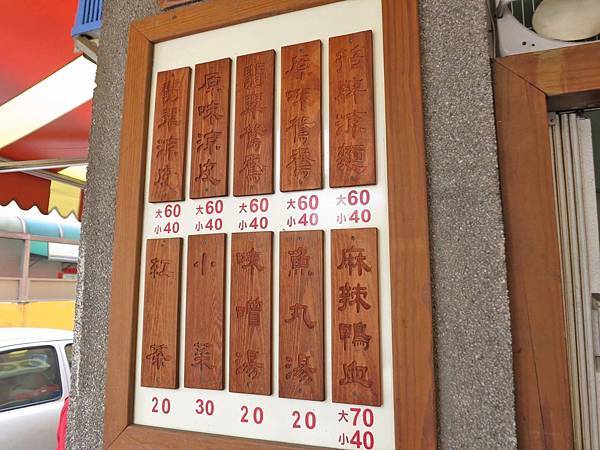 招牌涼麵
大60
小40
原味鴛鴦
大60
小40
翡翠鴛鴦
大60
小40
原味涼皮
大60
小40
翡翠涼皮
大60
小40
麻辣鴨血
大70
小40
魚丸湯
20
味噌湯
20
小菜
30
紅茶
20